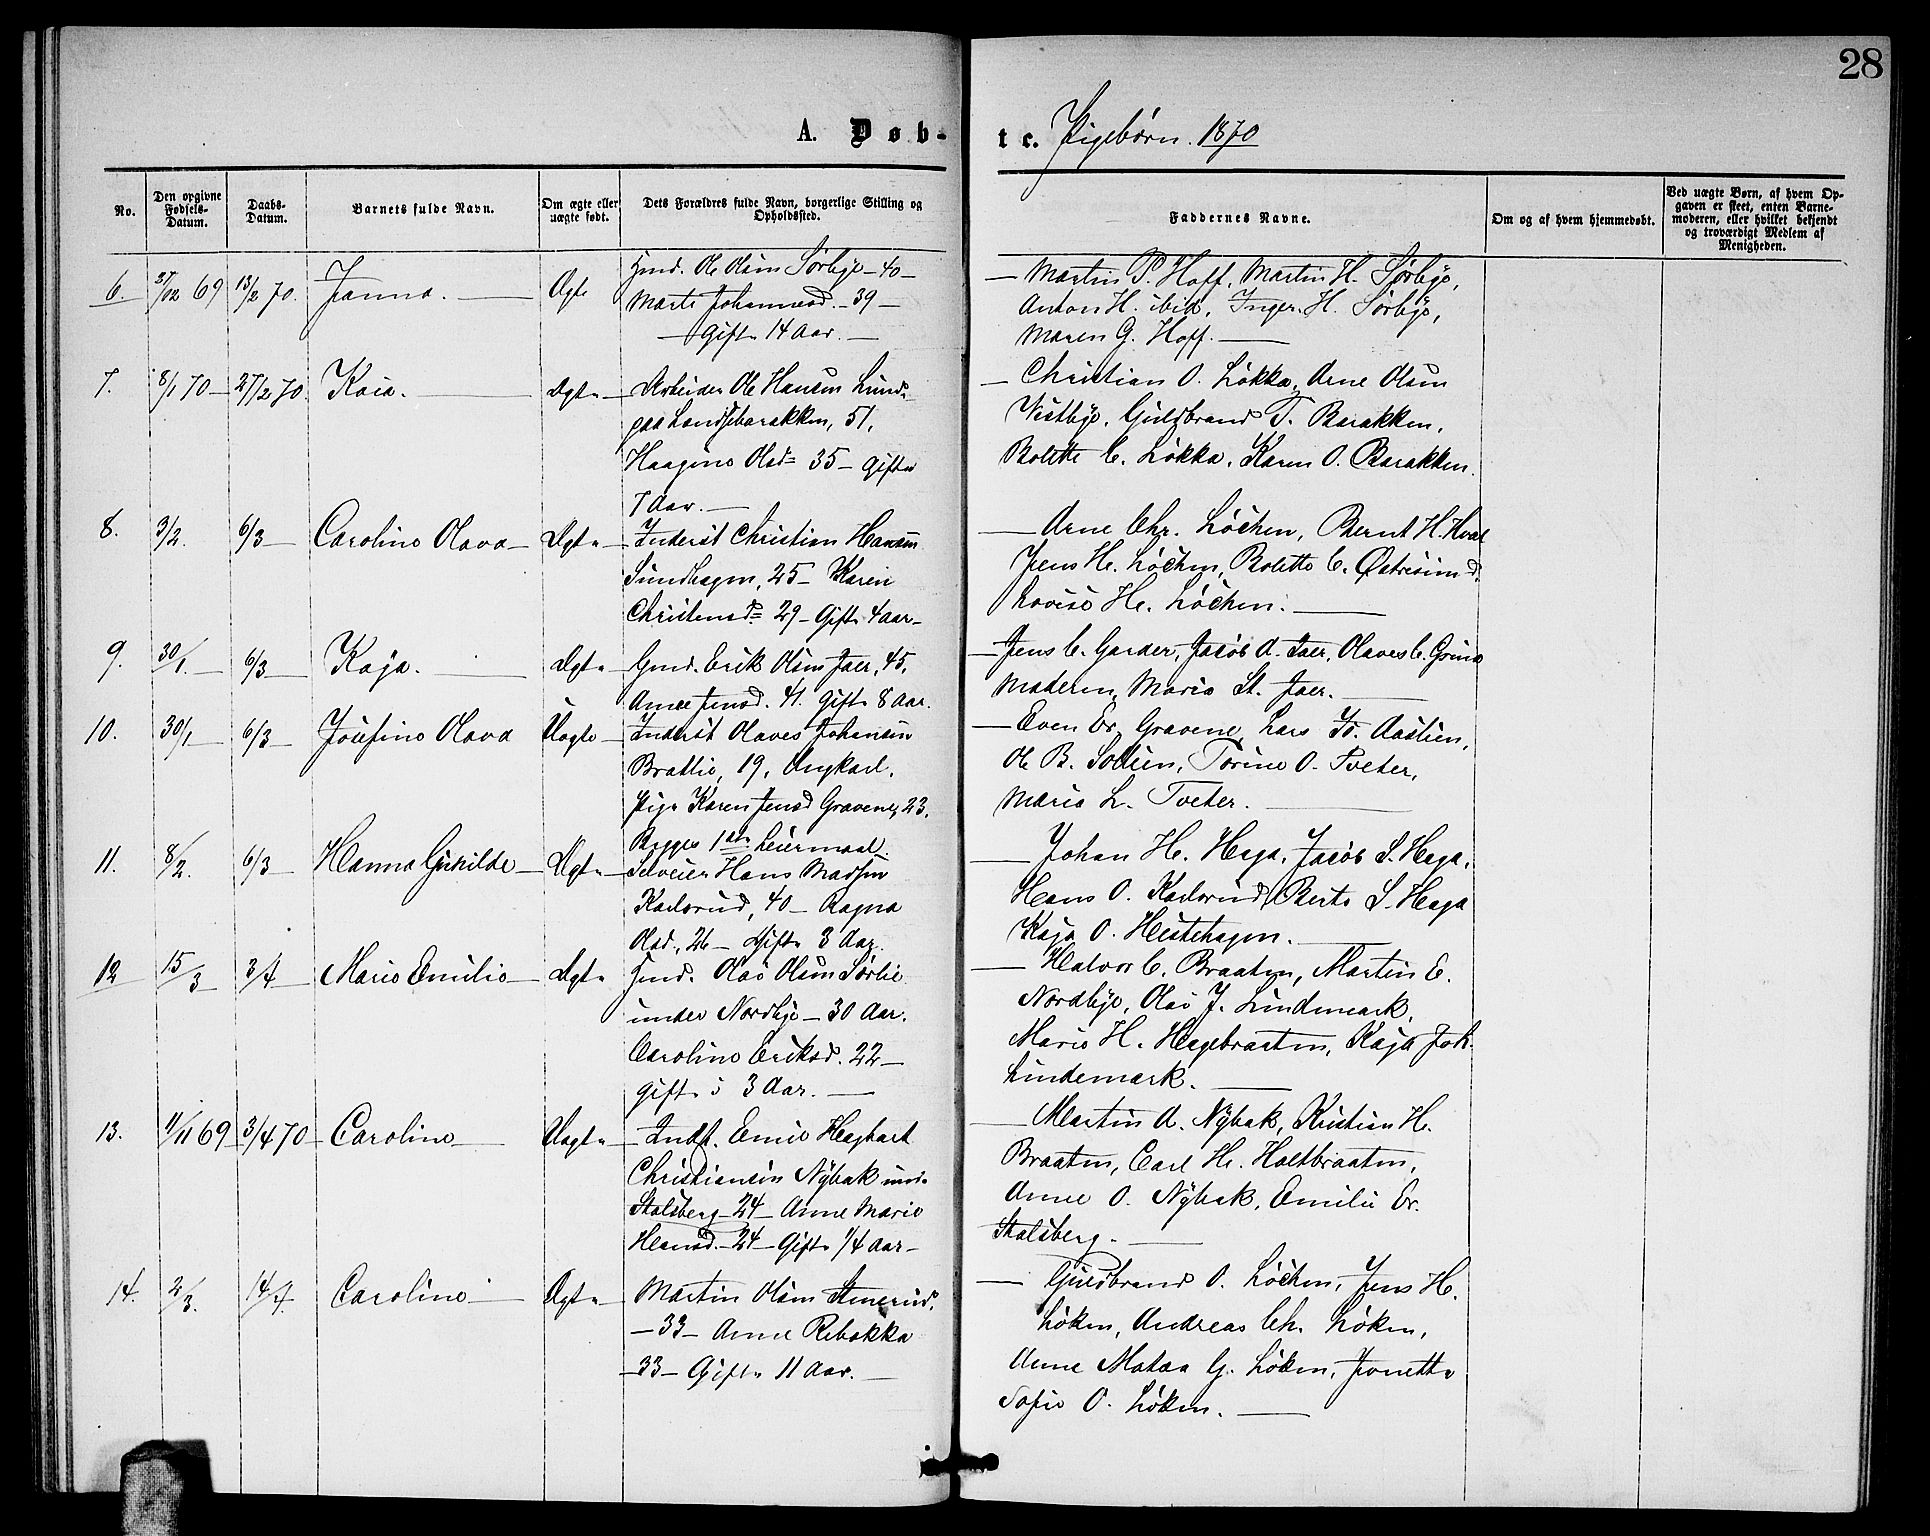 28
A. Døb- te. Pigebørn. 1870
No.
Den opgivne Fødsels-Datum.
Daabs-Datum.
Barnets fulde Navn.
Om ægte eller uægte født.
Dets Forældres fulde Navn, borgerlige Stilling og Opholdssted.
Faddernes Navne.
Om og af hvem hjemmedøbt.
Ved uægte Børn, af hvem Opgaven er skeet, enten Barnemoderen, eller hvilket bekjendt og troværdigt Medlem af Menigheden.
6. 69 13/2 70. Ægte Hmd. Ole Olsen Sørbye – 40 –
Marte Johannesd. – 39 –
Gift 14 Aar. –
– Martin P. Hoff, Martin H. Sørbye,
Anton H. ibid, Inger H. Sørbye,
Maren G. Hoff. –
7. 8/1 70 – 27/2 70. Kaia. – Ægte – Arbeider Ole Hansen Lund
paa Landsebarakken, 51,
Haagine Olsd 35 – Gift
7 Aar. –
– Christian O. Løkka, Arne Olsen
Vestbye, Guldbrand T. Barakken,
Bolette C. Løkka, Karen O. Barakken.
8. 3/2. 6/3 – Caroline Olava – Ægte – Inderst Christian Hansen
Sundhagen, 25 – Karen
Christensd 29 – Gift 4 Aar –
– Arne Chr. Løchen, Bernt H. Hval
Jens H. Løchen, Bolette C.
Lovise H. Løchen. –
9. 30/1. 6/3 – Kaja. – Ægte – Gmd. Erik Olsen Jaer, 45,
Anne Jensd. 41. Gift 8 Aar.
– Jens C. Garder, Jacob A. Jaer, Olaves C. Grine
Moderen, Marie St. Jaer. –
10. 30/1 – 6/3 – Josefine Olava Uægte – Inderst Olaves Johansen
Brattlie, 19, Ungkarl.
Pige Karen Jensd Gravene, 23.
Begges 1ste Leiermaal.
– Even Er. Gravene, Lars Aaslien,
Ole B. Sollien, Torine O. Tveter,
Marie L. Tveter. –
11. 8/2. 6/3 – Hanna Gunilde – Ægte – Selveier Hans Madsen
Karlsrud, 40 – Ragna
Olsd., 26 – Gift 3 Aar.
– Johan H. Haga, Jacob S. Haga,
Hans O. Karlsrud, Berte S. Haga
Kaja O. Hestehagen. –
12 15/3 3/4 – Marie Emilie – Ægte – Hmd. Olas Olsen Sørlie
under Nordbye – 30 Aar.
Caroline Eriksd. 22 –
Gift i 3 Aar. –
– Halvor C. Braaten, Martin E.
Nordbye, Olai J. Lindemark,
Marie H. Hagebraaten, Kaja Joh.
Lindemark. –
13. 11/11 69 – 3/4 70 – Caroline – Uægte – Indst. Emil Haghart
Christiansen Nybak und.
Stalsberg – 24 – Anne Marie
Hansd. – 24 – Gift 1/4 Aar –
– Martin A. Nybak, Kristian H.
Braaten, Carl H. Holtbraaten,
Anne O. Nybak, Emilie Er.
Stalsberg. –
14. 2/3. 14/4. Caroline – Ægte – Martin Olsen
– 33 – Anne Rebekka
– 33 – Gift 11 Aar. –
– Guldbrand O. Løchen, Jens H.
Løken, Andreas Ch. Løken,
Anne Matea G. Løken, Jonette
Sofie O. Løken. –